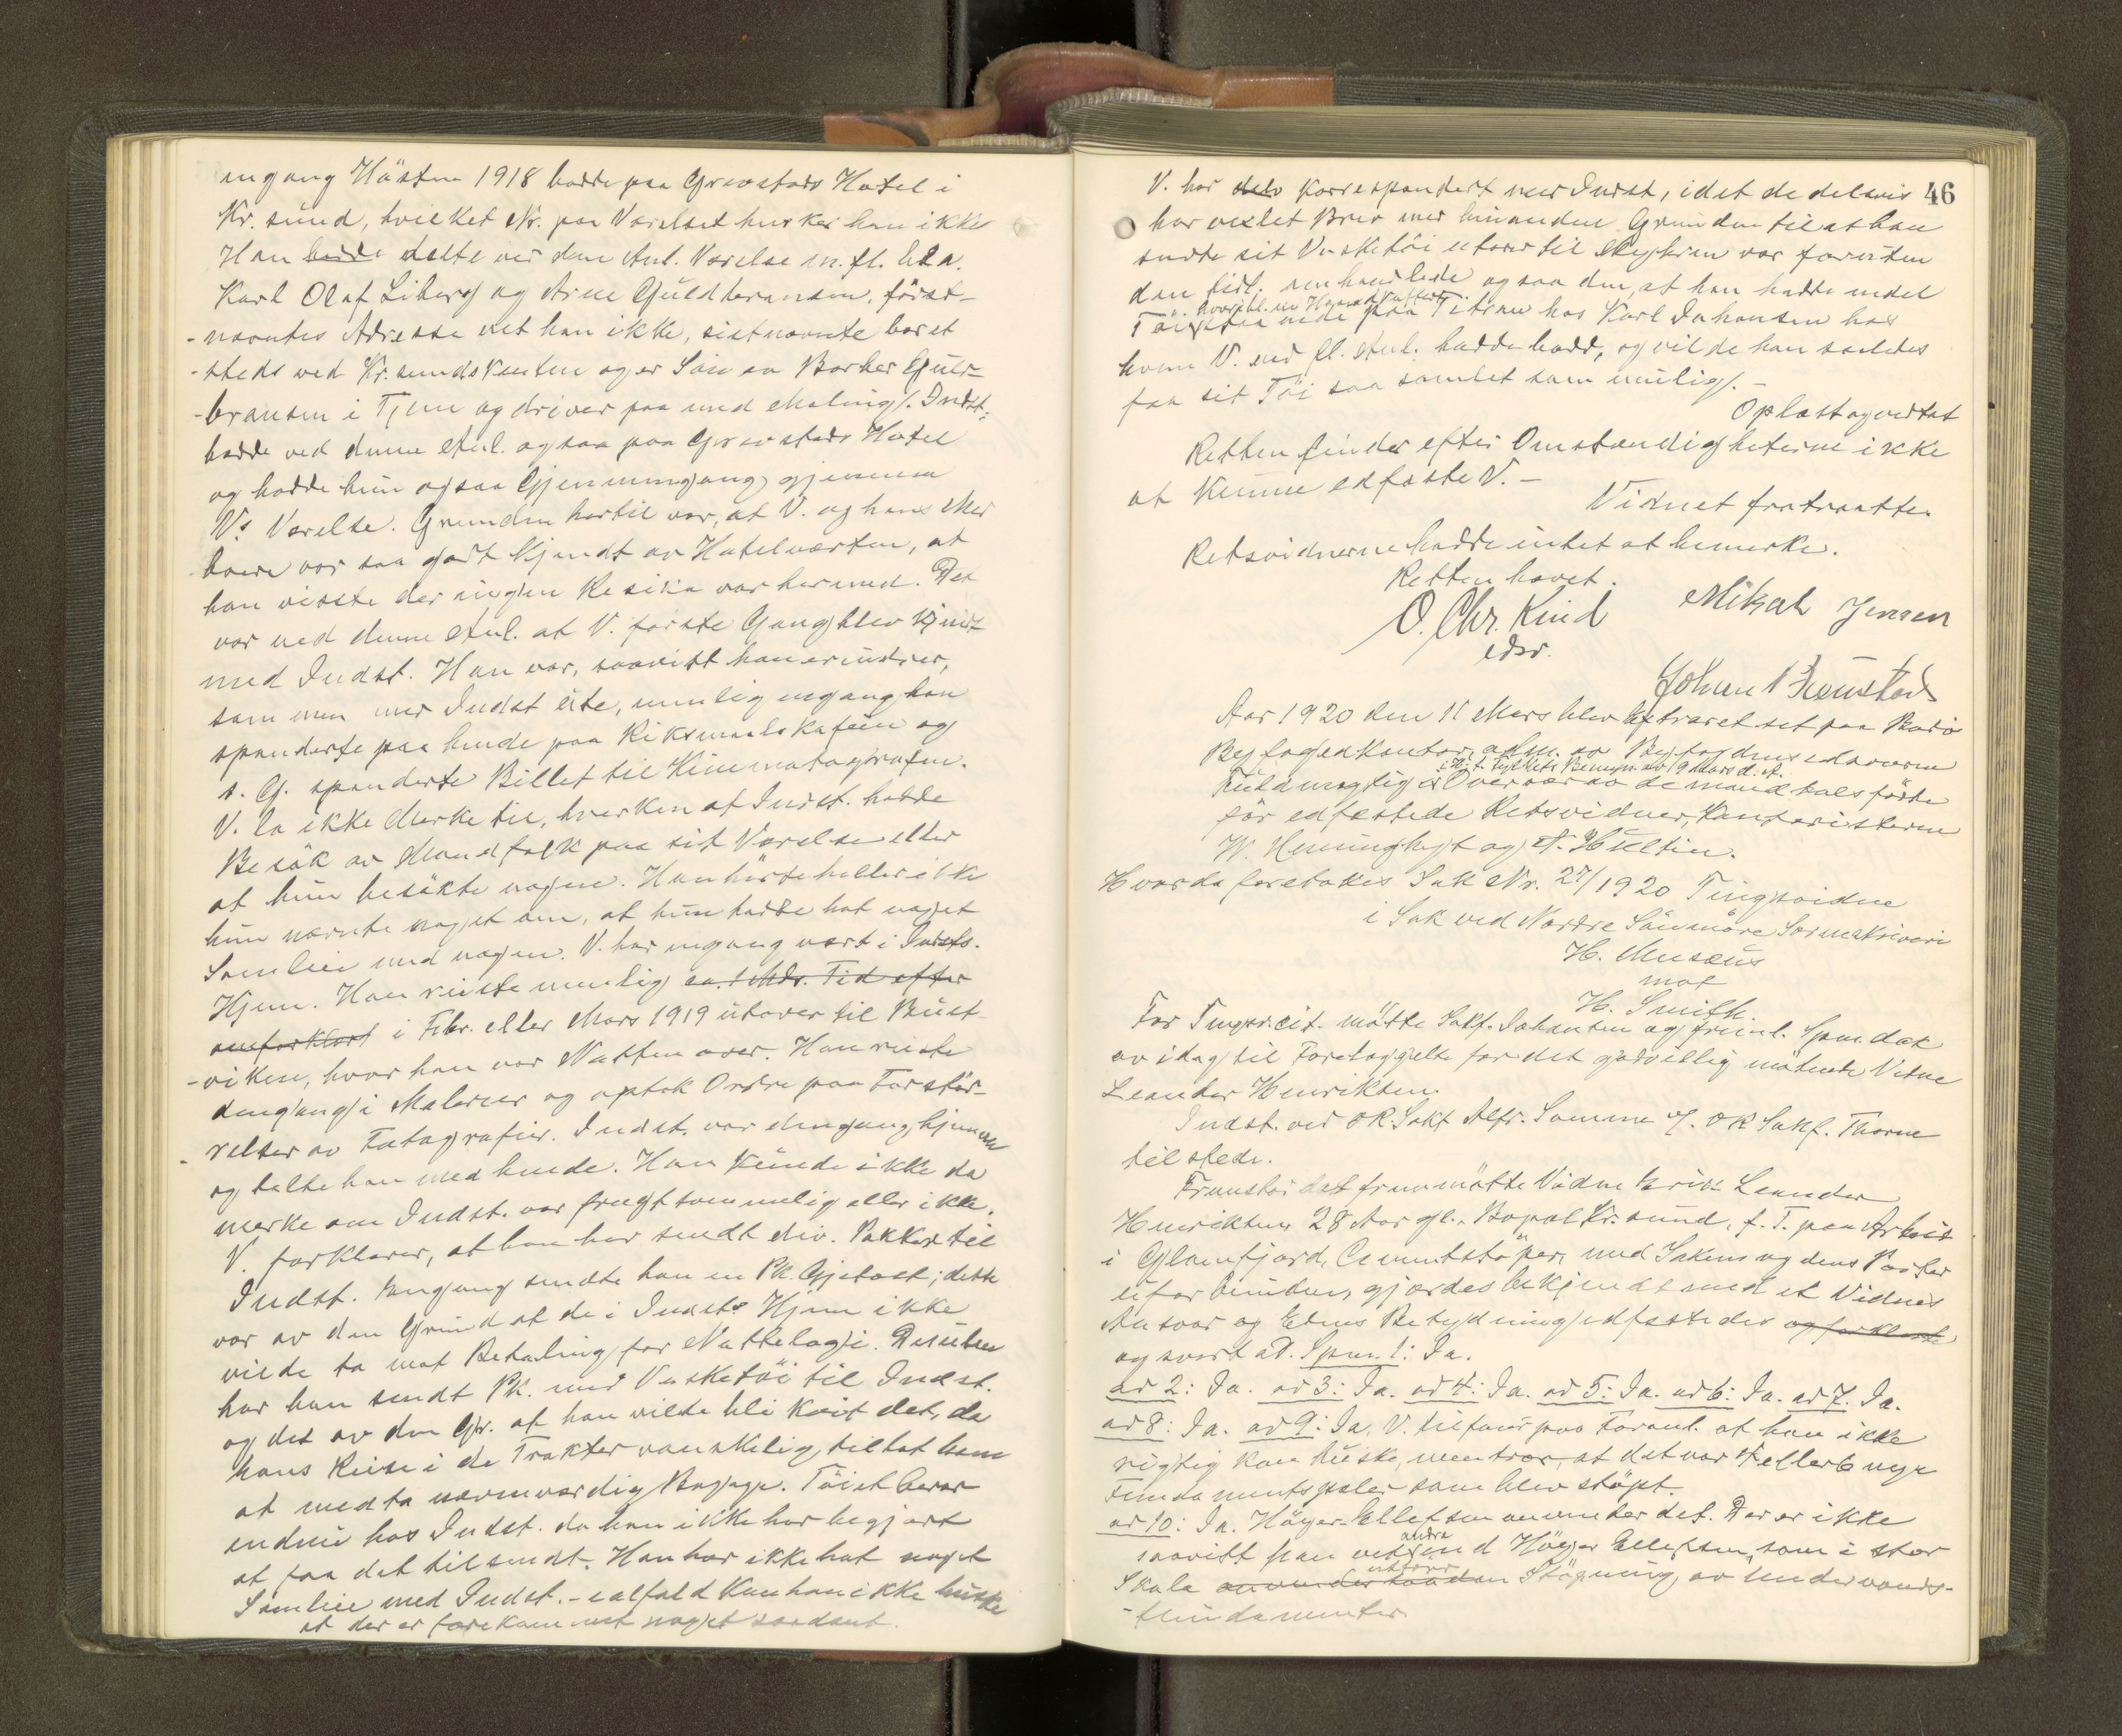 engang Hösten 1918 bodde paa Grevstads Hotel i
Kr.sund, hvilket Nr. paa Værelset husker han ikke
Han bodde delte ved den Anl. Værelse m. fl. bl. a.
Karl Olaf Liberg og Arne Guldbransen, först-
-nævntes Adresse vet han ikke, sistnævnte boret
-steds ved Kr.sunds Venten og er Sön av Barber Gul-
-bransen i Tjen og driver paa med Maling. Indst.
bodde ved denne Anl. ogsaa paa Grevstads Hotel
og hadde hun ogsaa Gjennemgang gjennem
V's Værelse. Grunden hertil var, at V. og hans Med
boere var saa godt kjendt av Hotelværten, at
han visste der ingen Resiko var hermed. Det
var ved denne Anl. at V. förste Gang blev kjendt
med Indst. Han var, saavidt han erindrer,
sammen med Indst ute, nemlig engang han
spanderte paa hende paa Riksmaalskafeen og
1. G. spanderte Billet til Kinematografen.
V. la ikke Merke til, hverken at Indst. hadde
Besök av Mandfolk paa sit Værelse eller
at hun besökte nogen. Han hörte heller ikke
hun nævnte noget om, at hun hadde hat noget
Samleie med nogen. V. har engang vært i Indsts.
Hjem. Han reiste nemlig ca. 1 Mdr. Tid efter
omforklart i Febr. eller Mars 1919 utover til Bust-
-viken, hvor han var Natten over. Han reiste
dengang i Malerier og optok Ordre paa Forstör-
-relser av Fotografier. Indst. var dengang hjemme
og talte han med hende. Han kunde ikke da
merke om Indst. var frugtsommelig eller ikke.
V. forklarer, at han har sendt div. Pakker til
Indst. Engang sendte han en Pk. Gjetost; dette
var av den Grund at de i Indsts Hjem ikke
vilde ta mot Betaling for Nattelogi. Desuten
har han sendt Pk. med Vasketöi til Indst.
og det av den Gr. at han vilde bli kvit det, da
hans Reise i de Trakter vanskelig tillot ham
at medta nævneværdig Bagage. Töiet beror
endnu hos Indst. da han ikke har begjært
at faa det tilsendt. Han har ikke hat noget
Samleie med Indst. - ialfald kan han ikke huske
at der er forekommet noget saadant.
46
V. har delv korrespondert med Indst, idet de delvis
har vexlet Brev med hinanden Grunden til at han
sendte sit Vasketöi utover til var foruten
den tidl. omhandlede ogsaa den, at han hadde endel
Töi nede paa Titran hos Karl Johansen hos
hvem V. ved fl. Anl. hadde bodd, og vilde han saaledes
faa sit Töi saa samlet som mulig. -
Oplæst og vedtat
Retten finder efter Omstændigheterne ikke
at kunne edfæste V. -
Vidnet fratraatte.
Retsvidnerne hadde intet at bemerke.
Retten hævet.
O. Chr. Kind Mikal Jensen
edsv.
Johan
Aar 1920 den 11 Mars blev Extraret sat paa Bodö
Byfogedkontor, adm. av Byfogdens edsvorne
Fuldmægtig Overvær av de mandtalsförte
för edfæstede Retsvidner, Kontoristerne
W. og A. Hultin.
Hvorda foretokes Sak Nr. 27/1920 Tingsvidne
i Sak ved Nordre Söndmöre Sorenskriveri
H. Musæus
mot
H. Smith.
For Tingsv.cit. mötte Sakf. Johansen og freml. Spm dat
av idag til Foretagelse for det godvillig mötende Vidne
Leander Henriksen.
Indst. ved OR.Sakf Alfr. Somme v/ OR Sakf. Thorne
tilstede.
Fremstod det fremmötte Vidne Erik Leander
Henriksen, 28 Aar gl., Bopæl Kr.sund, f. T. paa Arbeid
i Glomfjord, Cementstöper, med Saken og dens Parter
utforbunden, gjordes bekjendt med et Vidnes
Ansvar og Edens Betydning, edfæstedes og forklarte
og svort ad. Spm. 1: Ja.
ad 2: Ja. ad 3: Ja. ad 4: Ja. ad 5: Ja. ad 6: Ja. ad 7. Ja.
ad 8: Ja. ad 9: Ja, V. tilföier paa Foranl. at han ikke
rigtig kan huske, men tror, at det var 4 eller 6 nye
Fundamentspæler som blev stöpt.
ad 10: Ja. Höyer-Ellefsen anvender det. Der er ikke
saavidt han vet andre end Höyer Ellefsen, som i stor
Skala anvender saadan utförer Stöpning av Undervands-
-fundamenter